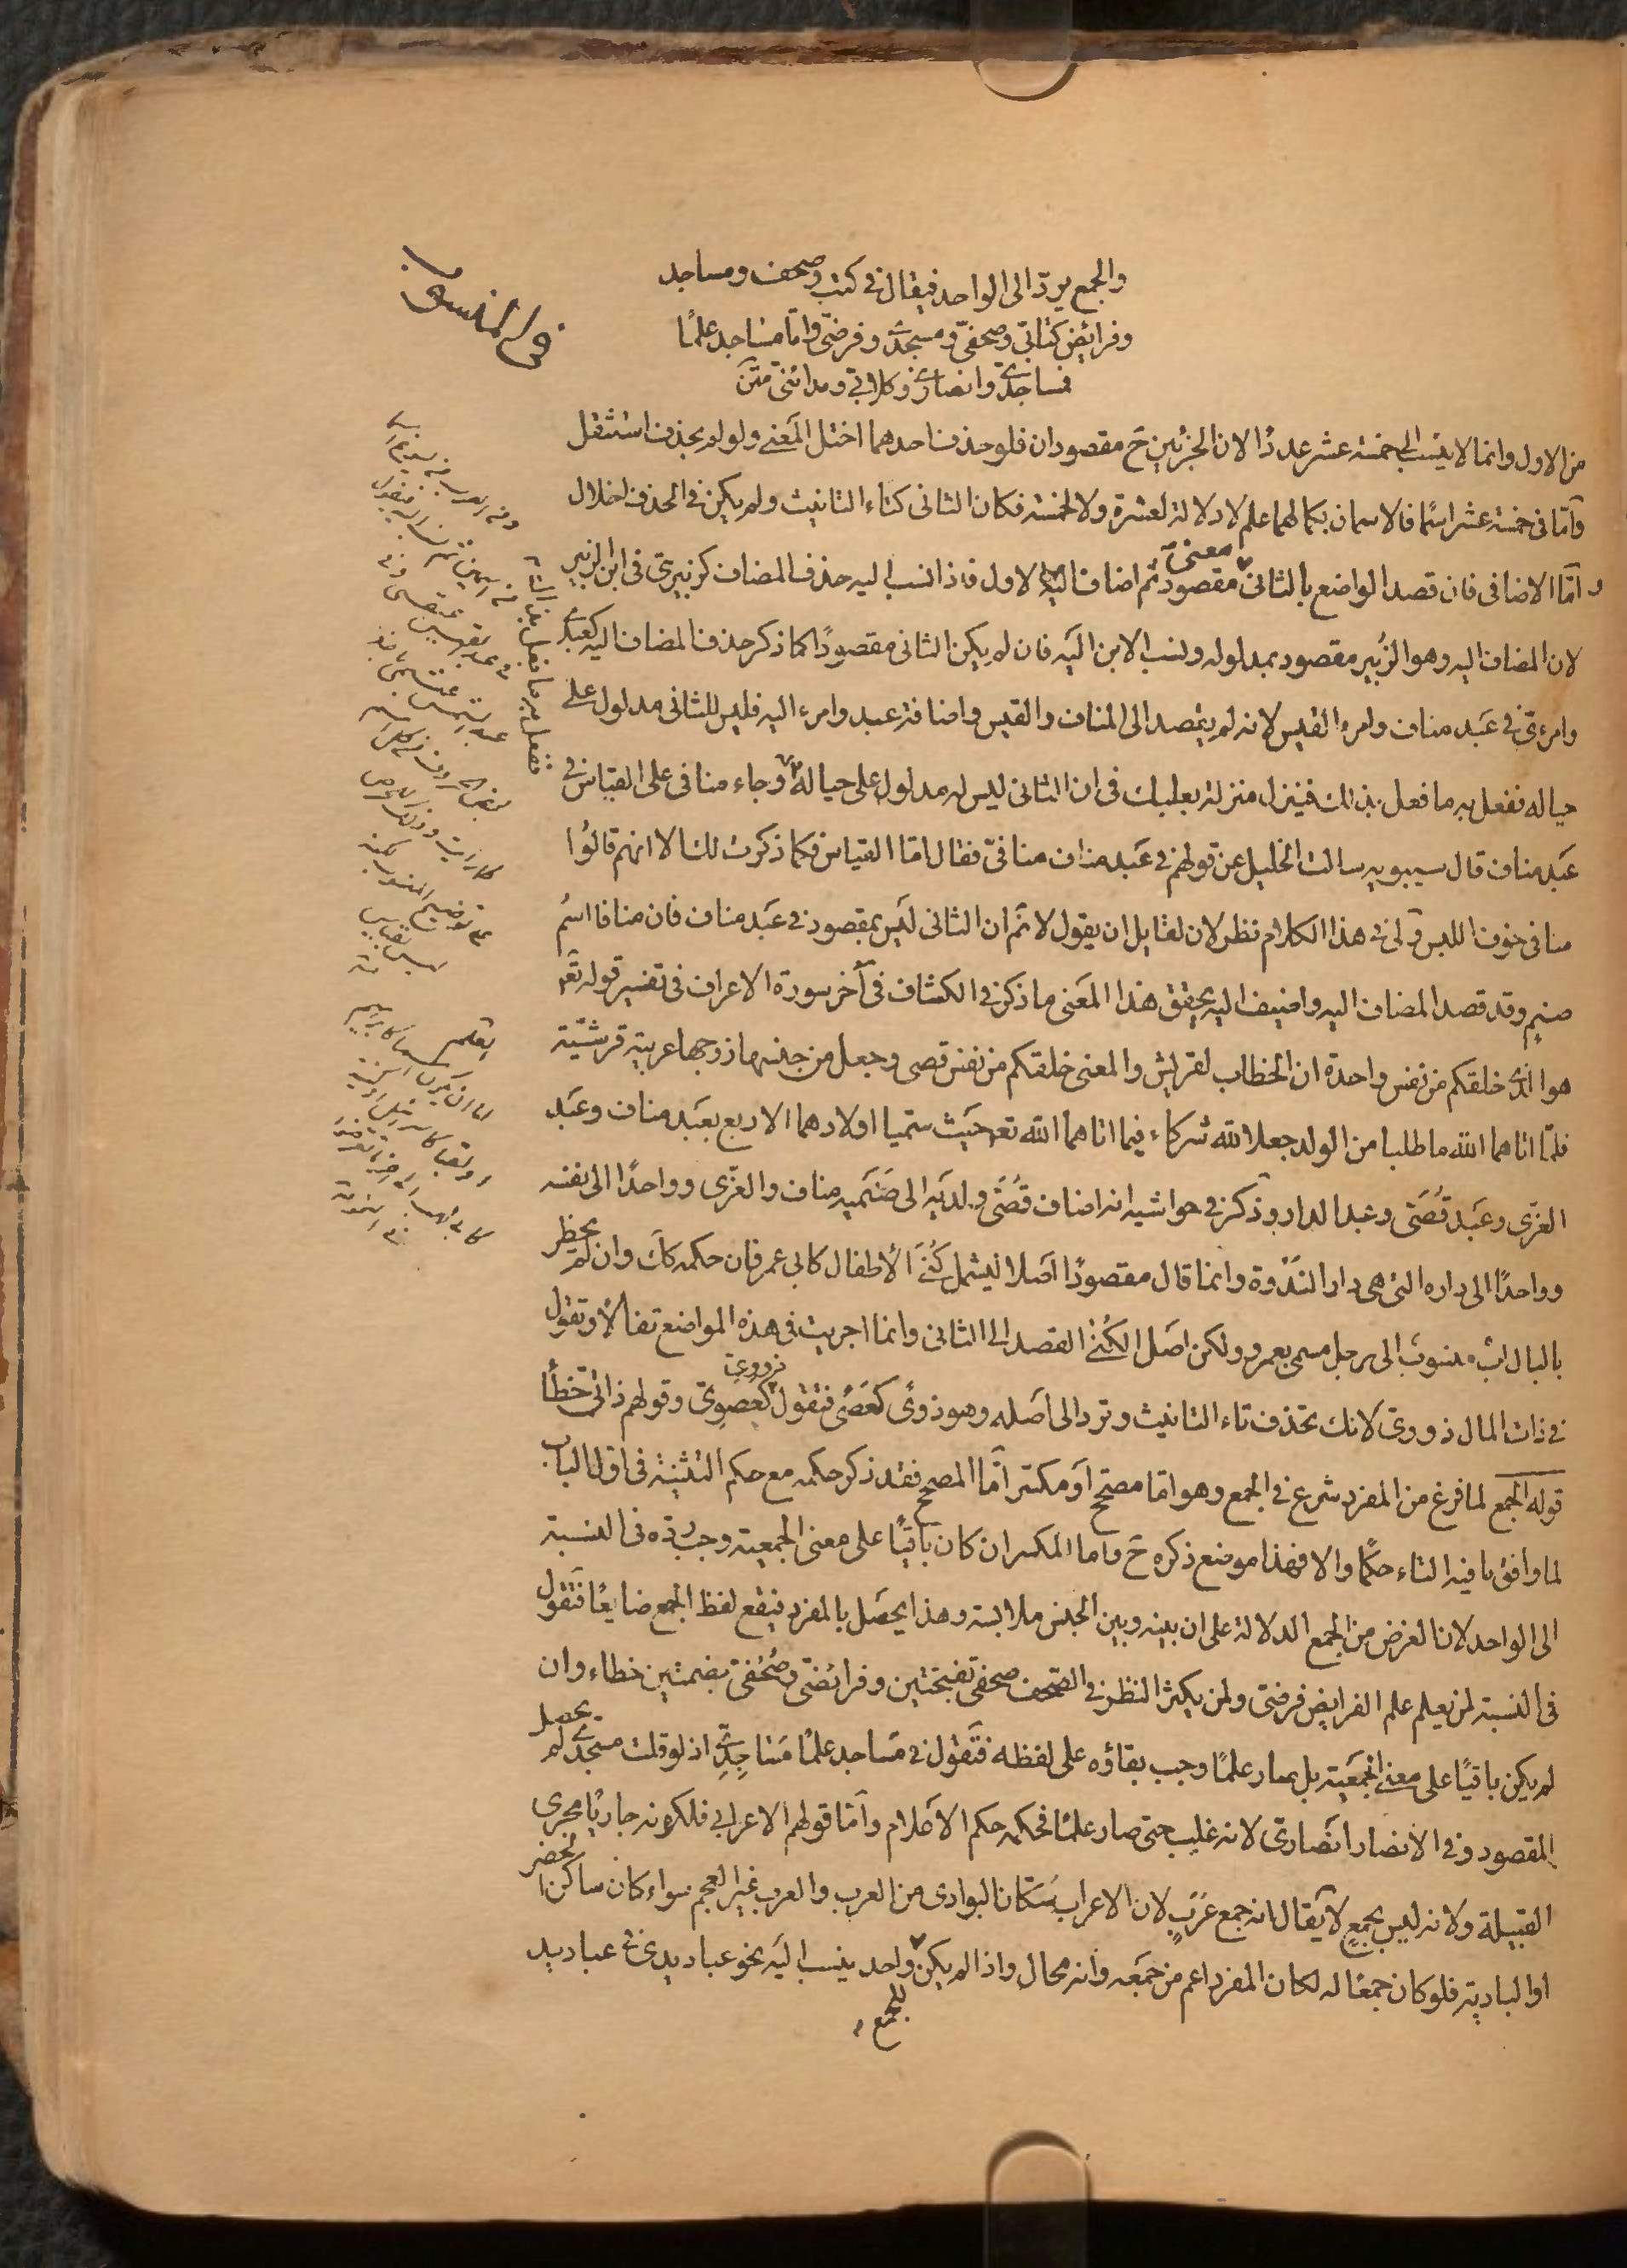 في المنسوب
والجمع يردّ الى الواحد فيقال في كتب وصحف ومساجد
وفرائض كتابيّ وصحفيّ ومسجديّ وفرضيّ وامّا مساجد علمًا
فمساجديّ وانصاريّ وكلابيّ ومدائنيّ متن
من الاول وانما لا ينسب الى خمسة عشر عددًا لان الجزئين ح مقصودان فلو حذف احدهما اختل المعنى ولو لم يحذف استثقل
وأمّا في خمسة عشر اسمًا فالاسمان بكمالهما علم لا دلالة لعشرة ولا لخمسة فكان الثاني كتاء التانيث ولم يكن في الحذف اخلال
وامّا الاضافي فان قصد الواضع بالثاني معنى مقصود ثم اضاف اليه الاول فاذا نسب اليه حذف المضاف كزبيري في ابن الزبير
لان المضاف اليه وهو الزُبير مقصود بمدلوله ونسب الابن اليه فان لم يكن الثاني مقصودًا كما ذكر حذف المضاف اليه كعبديّ
وامرئيّ في عَبد منافٍ وامرء القيس لانه لم يقصد الى المناف والقيس واضافة عبد وامرء اليه فليس للثاني مدلول على
حياله نفعل به ما فعل بذلك فينزل منزلة بعلبك في ان الثاني ليس له مدلول على حياله وجاء منافي على القياس في
عَبد مناف قال سيبويه سالت الخليل عن قولهم في عَبد مناف منافيّ فقال امّا القياس فكما ذكرت لك الا انهم قالوا
منافي خوف اللبس ولي في هذا الكلام نظر لان لقايل ان يقول لا نم ان الثاني ليس بمقصود في عَبد مناف فان منافا اسمُ
صنمٍ وقد قصد المضاف اليه واضيف اليه يحقق هذا المعنى ما ذكر في الكشاف في آخر سورة الاعراف في تفسير قوله تع
هو الذي خلقكم من نفس واحدة ان الخطاب لقريش والمعنى خلقكم من نفس قصي وجعل من جنسها زوجها عربية قرشيّة
فلمّا اتاهما الله ما طلبا من الولد جعلا لله شركاء فيما اتاهما الله تع حيث سميا اولادهما الاربع بعَبد مناف وعَبد
العزّى وعَبد قُصَيّ وعبد الدار وذكر في حواشيه انه اضاف قُصَيّ ولديه الى صَنَميه مناف والعزّى وواحدًا الى نفسه
وواحدًا الى داره التي هي دار النَدْوة وانما قال مقصودًا اصلا ليشمل كُنَى الاطفال كابي عمر فان حكمه كك وان لم يخطر
بالبال ابٌ منسوبٌ الى رجل مسمى بعمرو ولكن اصَل الكُنى القصد الى الثاني وانما اجريت في هذه المواضع تفألاً وتقول
في ذات المال ذوويّ لانك تحذف تاء التانيث وترد الى اصَله وهو ذوىً كعَصًى فتقول ذوويّ كعصويّ وقولهم ذاتيّ خطأ
قوله الجمع لما فرغ من المفرد شرع في الجمع وهو امّا مصحّح أو مكسّر امّا المصحح فقد ذكر حكمه مع حكم التثنية في اوّل الباب
لما وافق ما فيه التاء حكمًا والا فهذا موضع ذكره ح واما المكسر ان كان باقيًا على معنى الجمعية وجب ردّه في النسبة
الى الواحد لان الغرض من الجمع الدلالة على ان بينه وبين الجنس ملابسة وهذا يحصَل بالمفرد فيقع لفظ الجمع ضايعًا فتقول
في النسبة لمن يعلم علم الفرايض فرضيّ ولمن يكثر النظر في الصّحف صحفيّ بفتحتين وفرائضيّ وصُحُفيّ بضمتين خطاء وان
لم يكن باقيًا على معنى الجمَعية بل صار علمًا وجب بقاؤه على لفظه فتقول في مَساجد علمًا مَساجِديّ اذ لو قلت مسجديّ لم يحصل
المقصود وفي الانصار انصَاريّ لانه غلب حتى صار علمًا فحكمه حكم الاعلام وامّا قولهم الاعرابي فلكونه جاريًا مجرى
القبيلة ولانه ليس بجمعٍ لا يقال انه جمع عَرَبٍ لان الاعراب سُكّان البوادي من العرب والعرب غير العجم سواء كان ساكن الحضر
او البادية فلو كان جمعًا له لكان المفرد اعم من جمَعه وانه محال واذا لم يكن للجمع واحد ينسب اليه نحو عباديدي في عباديد